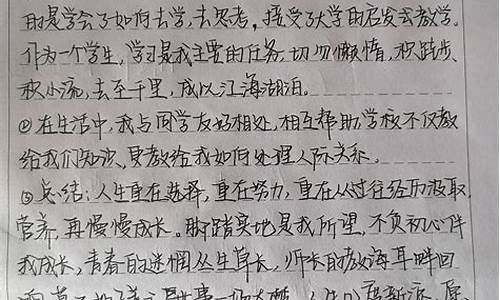 的是学会了如何去学,去思考。接受了大学的启发式教学。
作为一个学生,学习是我主要的任务,切勿懒惰,积跬步、
积小流,去至千里,成以江海湖泊。
②在生活中,我与同学友好相处,相互帮助,学校不仅教
给我们知识、更教给我如何处理人际关系。
③总结:人生重在选择,重在努力,重在从过往经历汲取
营养,再慢慢成长。脚踏实地是我所望,不负初心伴
我成长,青春的迷惘丛生草长,师长的教诲耳畔回